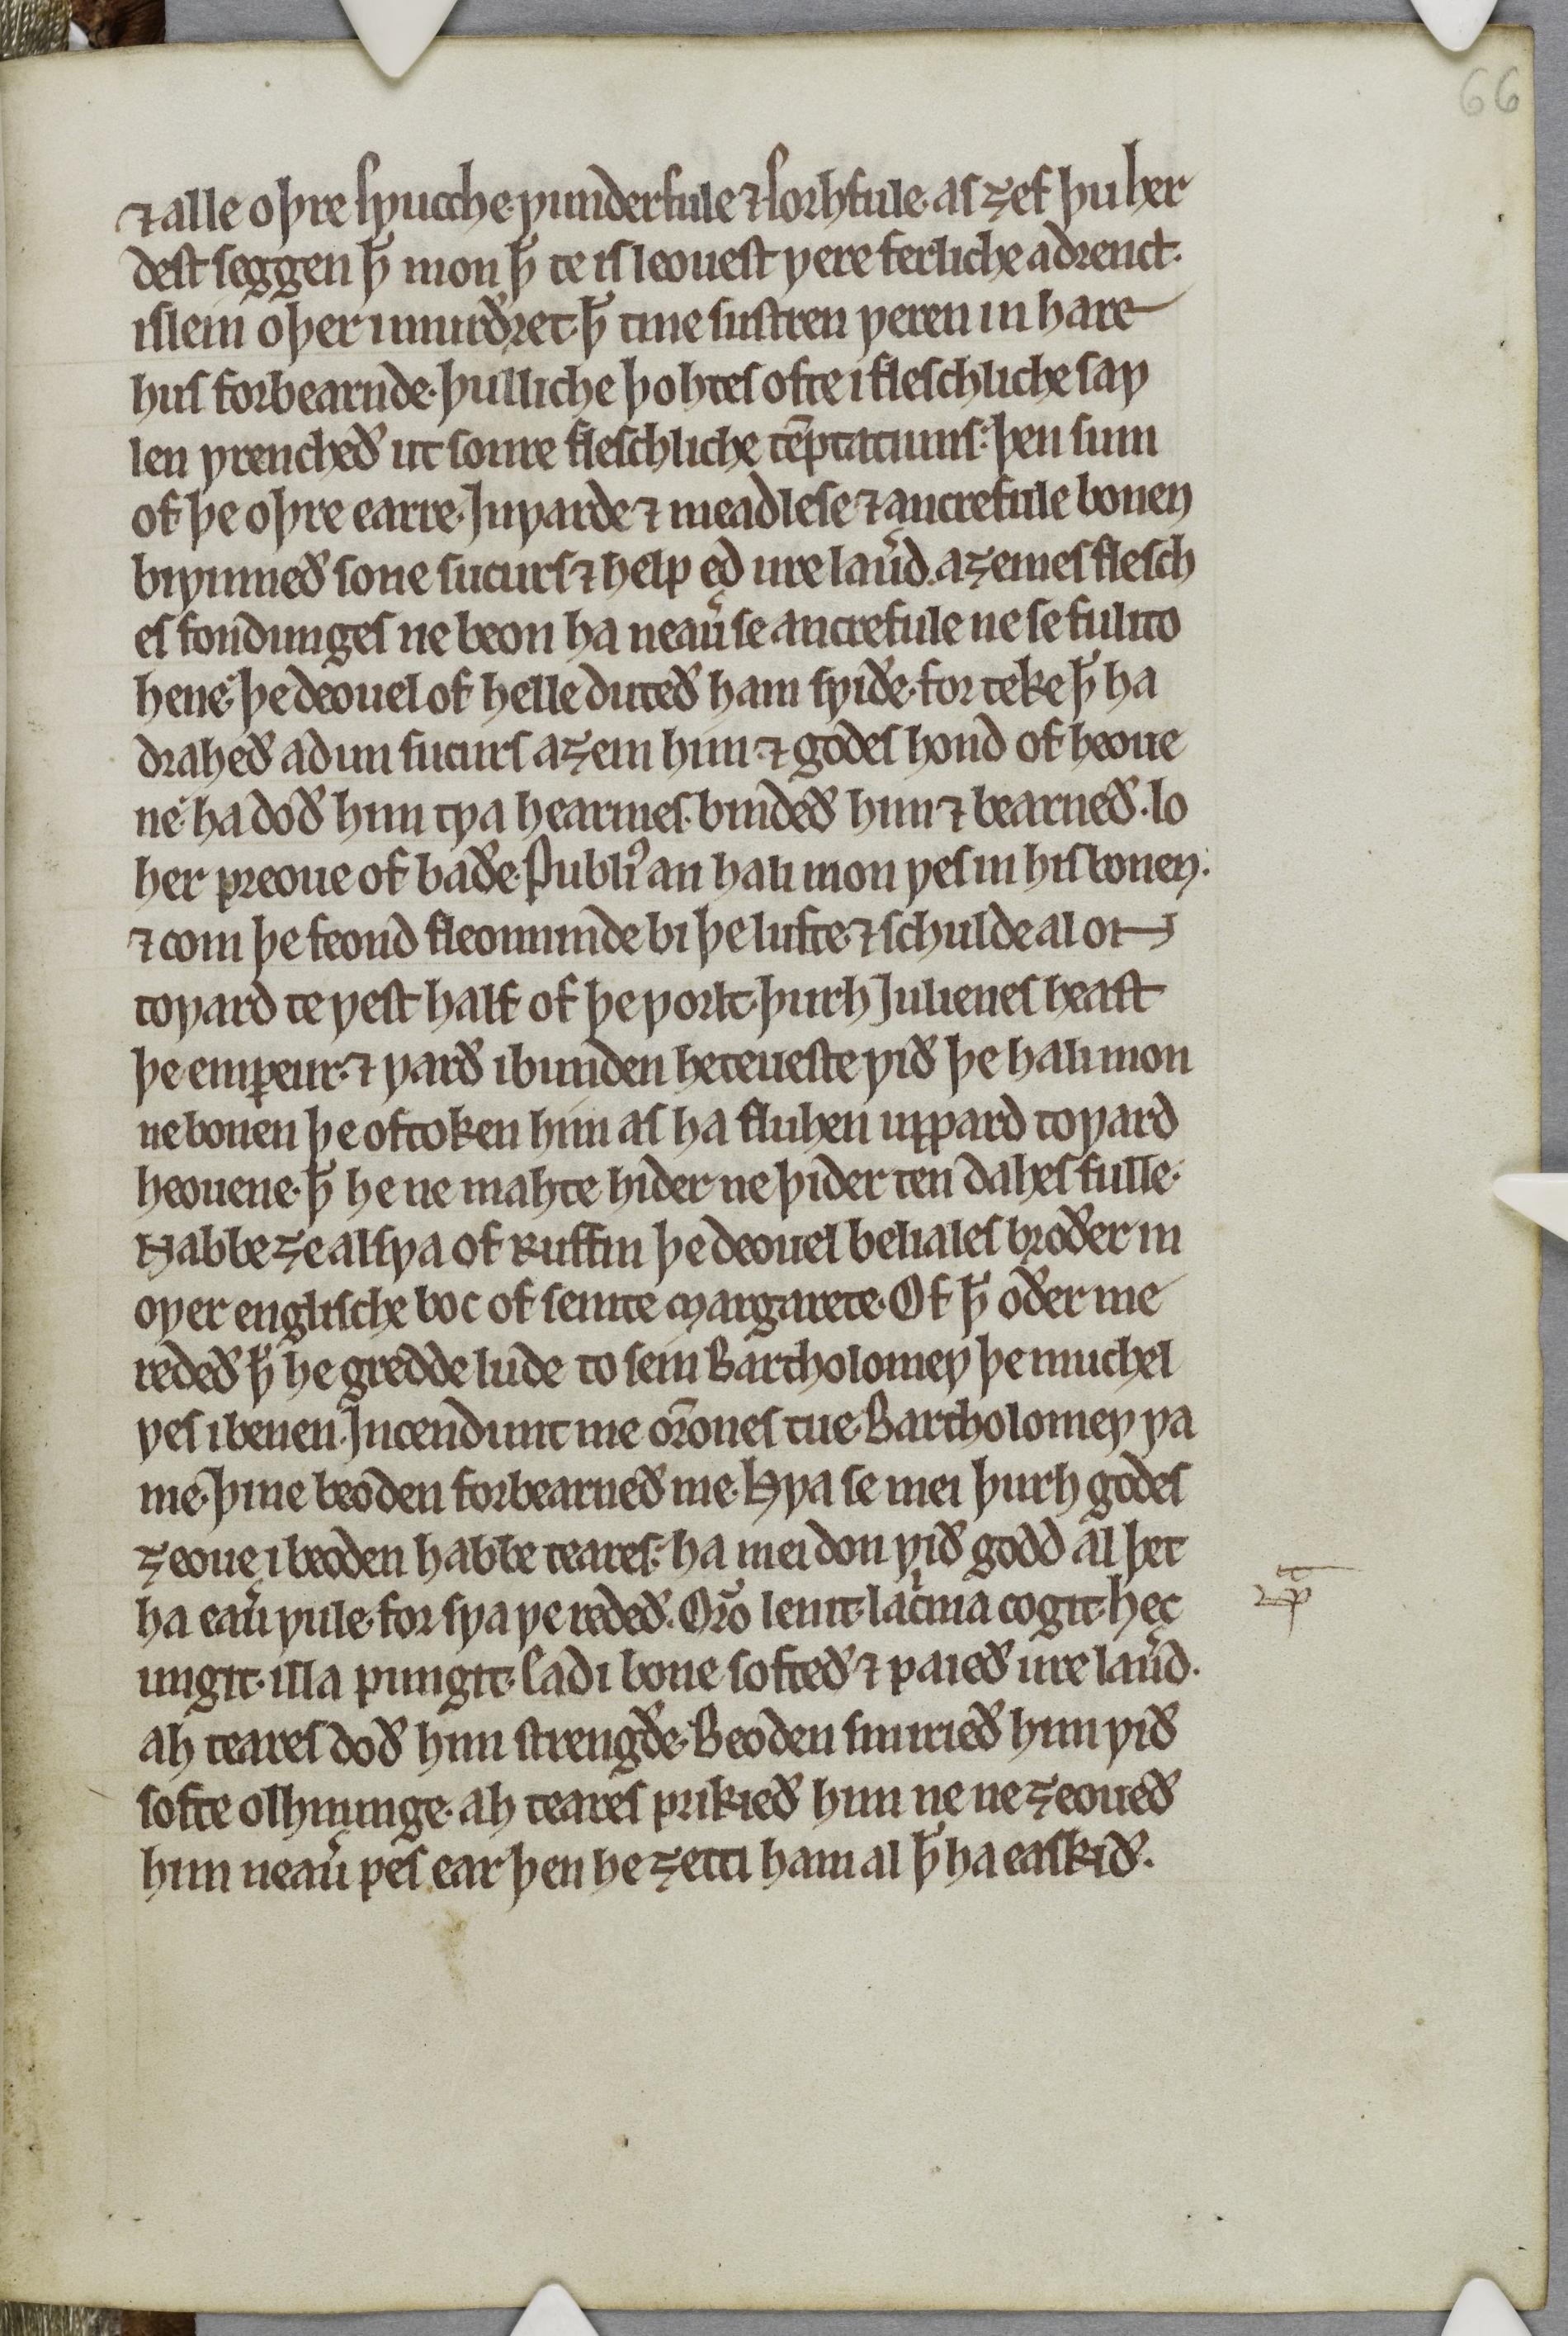 66
⁊ alle oþre sƿucche ƿunderfule ⁊ sorhfule. as ȝef þu her
dest seggen ꝥ mon ꝥ te is leouest ƿere ferliche adrenct.
islein oþer imurðret. ꝥ tine sustren ƿeren in hare
hus forbearnde. þulliche þohtes ofte i fleschliche saƿ
len ƿrencheð ut sonre fleschliche tēptatiuns. þen sum
of þe oþre earre. Inƿarde ⁊ meadlese ⁊ ancrefule bonen
biƿinneð sone sucurs ⁊ help ed ure lau̾d. aȝeines flesch
es fondunges ne beon ha neau̾ se ancrefule ne se fulito
hene. þe deouel of helle duteð ham sƿiðe. for teke ꝥ ha
draheð adun sucurs aȝein him. ⁊ godes hond of heoue
ne. ha doð him tƿa hearmes. bindeð him ⁊ bearneð. lo
her preoue of baðe. Publi᷒ an hali mon ƿes in his bonen.
⁊ com þe feond fleoninde bi þe lufte. ⁊ schulde al on
toƿard te ƿest half of þe ƿorlt. þurh Iulienes heast
þe emꝑeur. ⁊ ƿarð ibunden heteueste ƿið þe hali mon
ne bonen þe oftoken him as ha fluhen upƿard toƿard
heouene. ꝥ he ne mahte hider ne þider ten dahes fulle.
Habbe ȝe alsƿa of Ruffin þe deouel beliales broðer in
oƿer englische boc of seinte Margarete. Of ꝥ oðer me
redeð ꝥ he gredde lude to sein Bartholomeƿ þe muchel
ƿes i benen. Incendunt me or̄ones tue. Bartholomeƿ ƿa
me. þine beoden forbearneð me. Hƿa se mei þurh godes
ȝeoue i beoden habbe teares. ha mei don ƿið godd al þet
ha eau̾ ƿule. for sƿa ƿe redeð. Or̄o lenit. lac̾ma cogit. hec
ungit. illa pungit. Eadi bone softeð ⁊ paieð ure lau̾d.
ah teares doð him strengðe. Beoden smirieð him ƿið
softe olhnunge. ah teares prikieð him ne ne ȝeoueð
him neau̾ pes ear þen he ȝetti ham al ꝥ ha easkið.